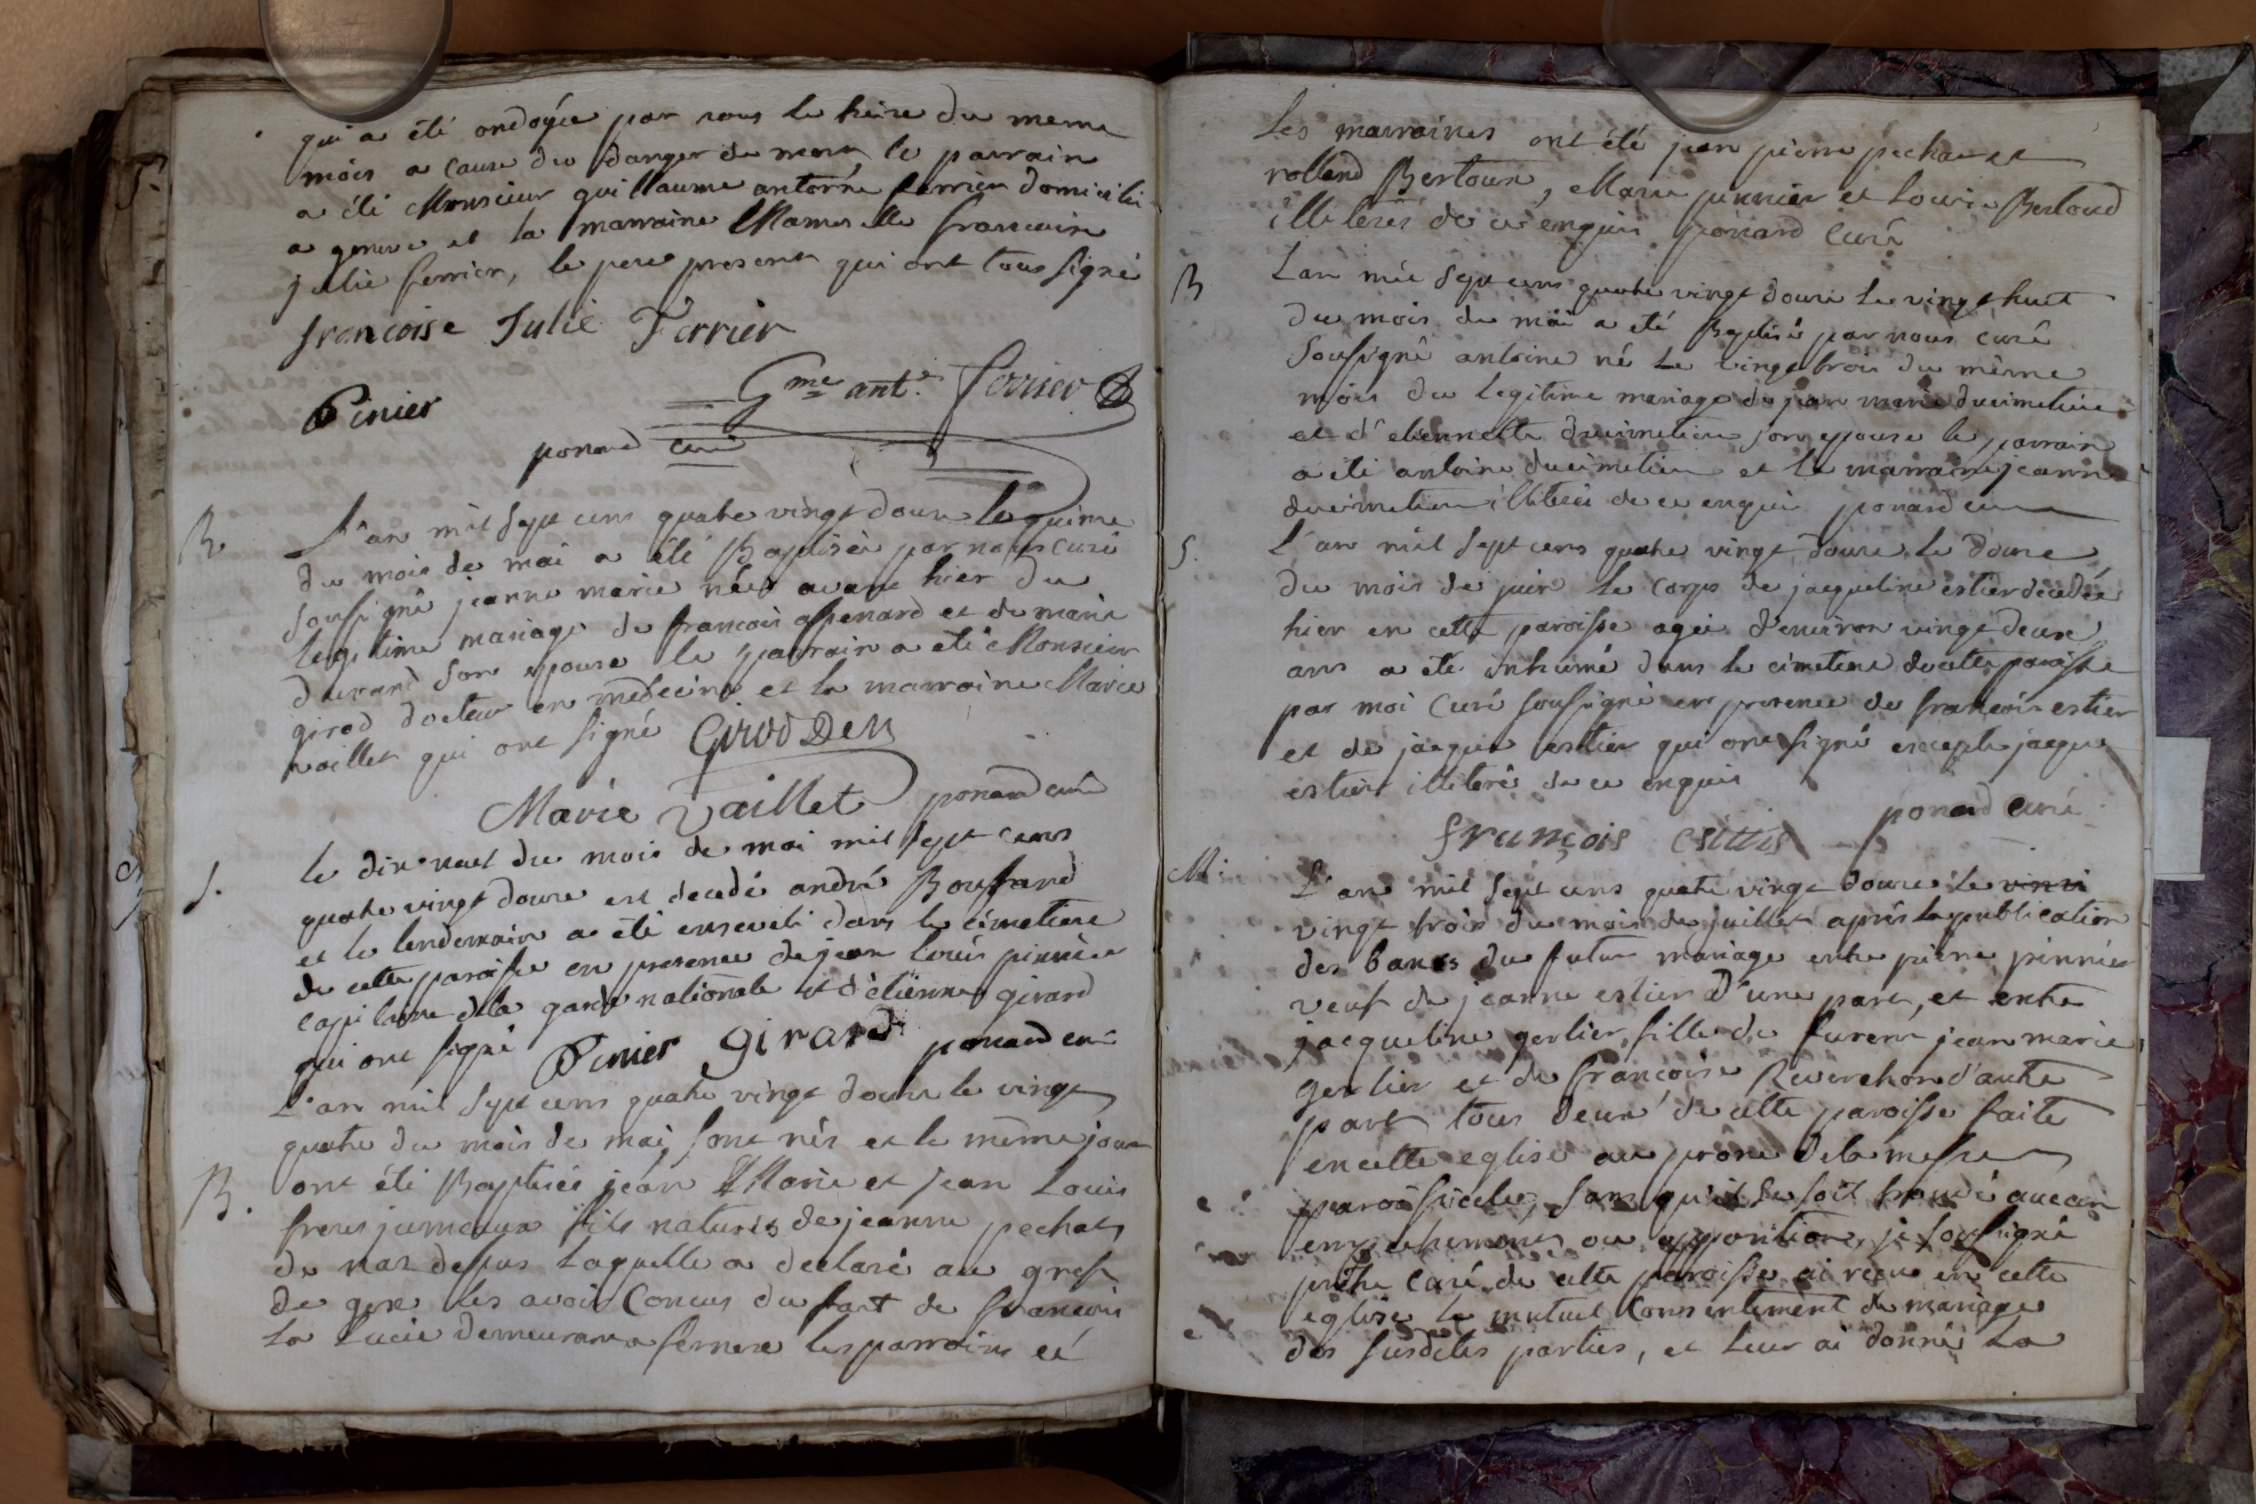 qui a été ondoyée par nous le treize du meme
mois a cause du danger de mort le parrain
a été Monsieur guillaume antoine ferrier domicilié
a geneve et la marraine Mameselle francoise
julie ferrier, le pere present qui ont tous signé
francoise Julie Ferrier
Pinier
Gme ant.e ferrier
ponard curé
B.
L'an mil sept cens quatre vingt douze le quinze
du mois de mai a été Baptisée par nous curé
soussigné jeanne marie née avant hier du
legitime mariage de francois apenard et de marie
durand son epouse le parrain a été Monsieur
girod docteur en médecine et la marraine Marie
vaillet qui ont signé Girod DM
Marie vaillet ponard curé
S.
le dix neuf du mois de mai mil sept cens
quatre vingt douze est decedé andré Boufard
et le lendemain a été enseveli dans le cimetiere
de cette paroisse en presence de jean louis pinnier
capitaine dela garde nationale et d'étienne girard
qui ont signé Pinier girard ponard curé
L'an mil sept cens quatre vingt douze le vingt
quatre du mois de mai, sont nés et le même jour
B.
ont été Baptisés jean Marie et jean Louis
freres jumeaux fils naturels de jeanne pechat
de naz dessus laquelle a declaré au greffe
de gex les avoir concus du fait de francois
la lucie demeurant a fernex les parrains et
Les marraines ont été jean pierre pechat et
rolland Bertoux, Marie pinnier et Louise Bertoud
illiterés de ce enquis ponard curé
B
L'an mil sept cens quatre vingt douze le vingt huit
du mois de mai a été Baptisé par nous curé
soussigné antoine né le vingt trois du même
mois du legitime mariage de jean marie ducimetiere
et d'etiennette ducimetiere son epouse le parrain
a été antoine ducimetiere et la marraine jeanne
ducimetiere illiterés de ce enquis ponard curé
S.
L'an mil sept cens quatre vingt douze le douze
du mois de juin le corps de jaqueline estier decedée
hier en cette paroisse agée d'environ vingt deux
ans a été inhumé dans le cimetiere de cette paroisse
par moi curé soussigné en presence de francois estier
et de jacque estier qui ont signé excepté jacque
estier illiteré de ce enquis
ponard curé
françois
M:
L'an mil sept cens quatre vingt douze le
vingt trois du mois de juillet après la publication
des bancs du futur mariage entre pierre pinnier
veuf de jeanne estier d'une part, et entre
jacqueline gerlier, fille de furent jean marie
gerlier et de françoise Reverchon d'autre
part tous deux de cette paroisse faite
en cette eglise au prône dela messe
paroissielle, sans qu'il se soit trouvé aucun
empechement ou opposition, je soussigné
prêtre curé de cette paroisse ai recu en cette
eglise le mutuel consentement de mariage
des susdites parties, et leur ai donné la